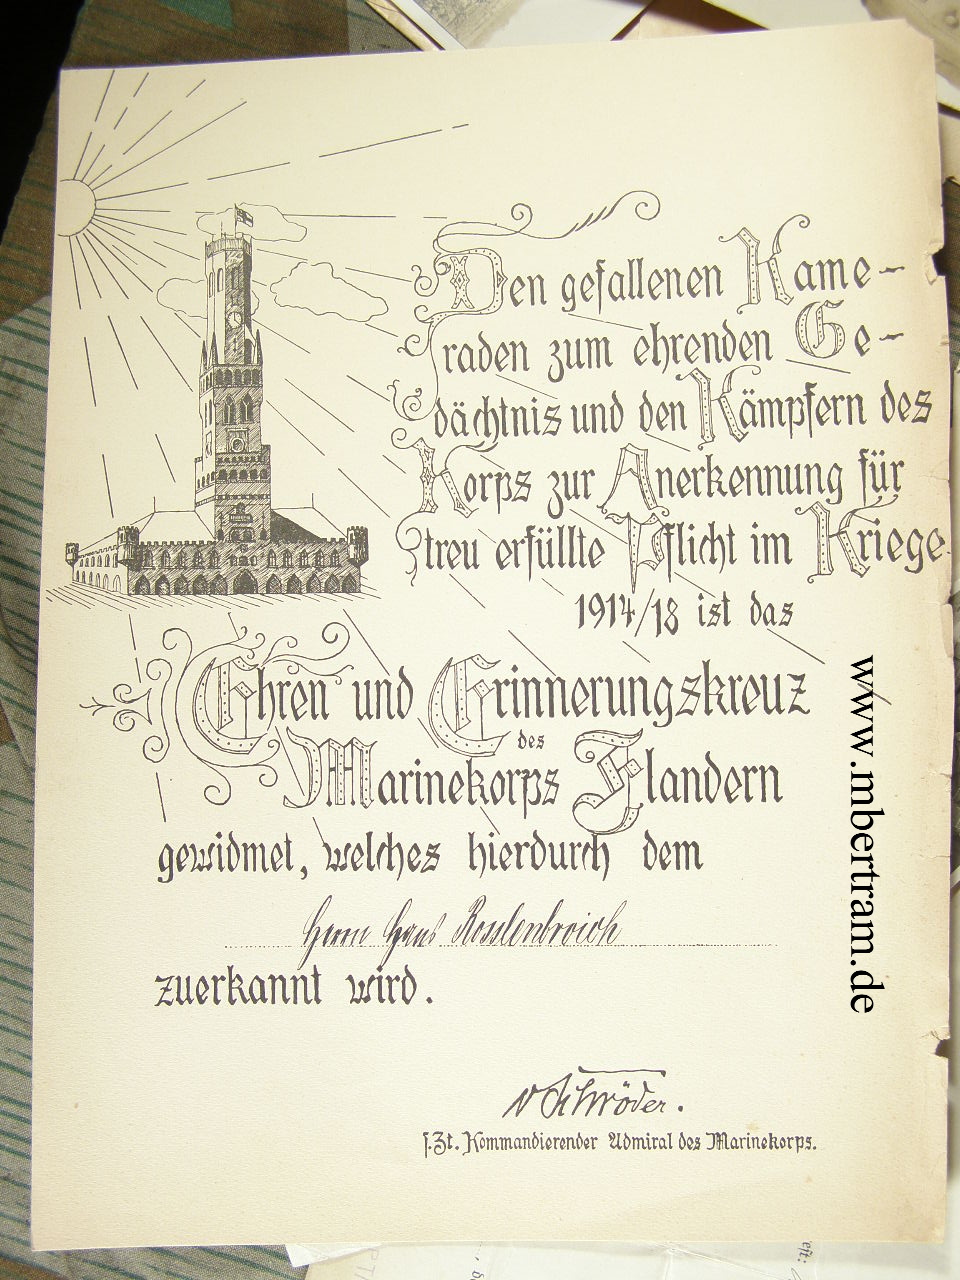 Den gefallenen Kame-
raden zum ehrenden Ge-
dächtnis und den Kämpfern des
Korps zur Anerkennung für
treu erfüllte Pflicht im Kriege
1914/18 ist das
Ehren und Erinnerungskreuz
des
Marinekorps Flandern
gewidmet, welches hierdurch dem
Herrn Hans Rosslenbroich
zuerkannt wird.
v Schröder.
s.Zt. Kommandierender Admiral des Marinekorps.
www.mbertram.de